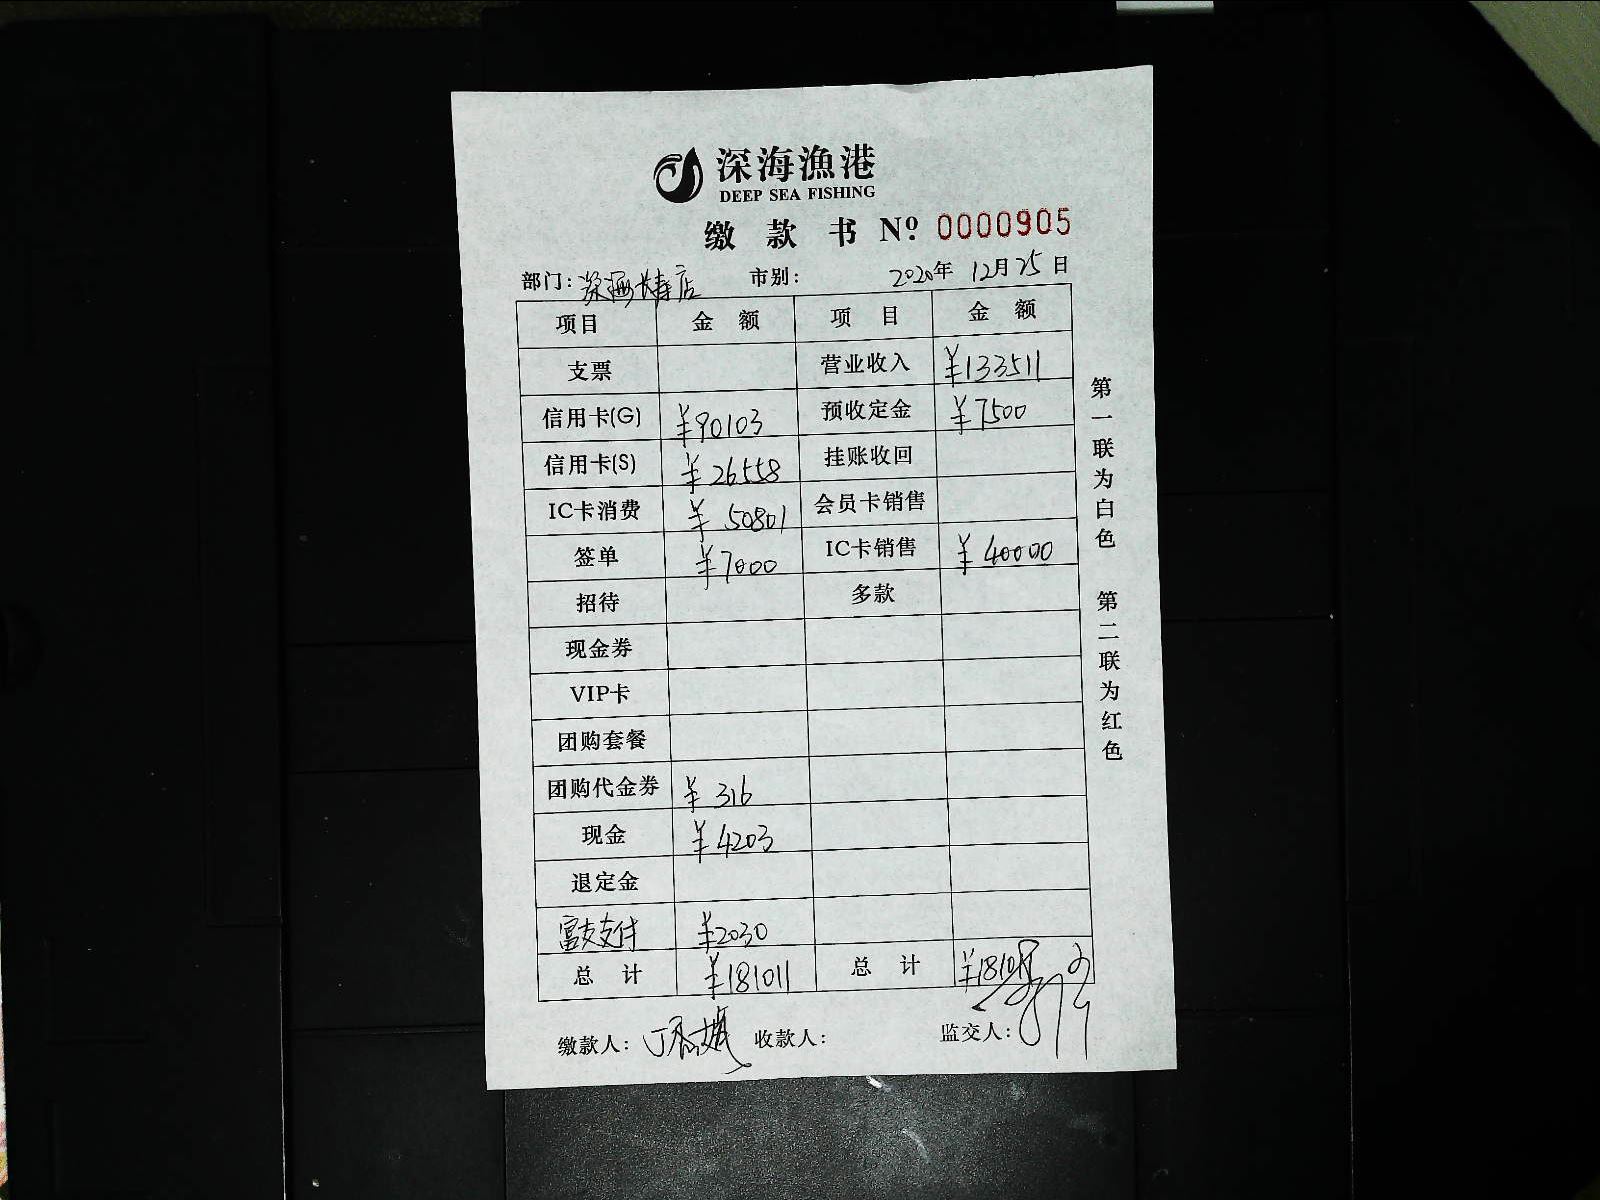 深海漁港
DEEP SEA FISHING
缴 款 书 Nº: 0000905
部门: 深海 店 市别: 2020年 12月25日
项目 金 额 项 目 金 额
支票 营业收入 ¥133511
信用卡(G) ¥90103 预收定金 ¥7500
信用卡(S) ¥26558 挂账收回
IC卡消费 ¥50801 会员卡销售
签单 ¥7000 IC卡销售 ¥40000
招待 多款
现金券
VIP卡
团购套餐
团购代金券 ¥316
现金 ¥4203
退定金
富支支付 ¥2030
总 计 ¥181011 总 计 ¥181011
缴款人: 收款人: 监交人:
第一联为白色 第二联为红色